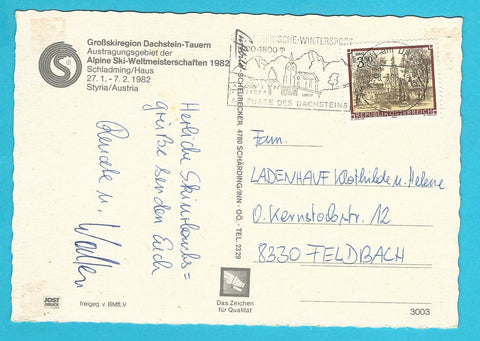 Großskiregion Dachstein-Tauern
Austragungsgebiet der
Alpine Ski-Weltmeisterschaften 1982
Schladming/Haus
27. 1. - 7. 2. 1982
Styria/Austria
Herzliche Skiurlaubs=
grüße senden Euch
Renate u. Walter
JOST
DRUCK
freigeg. v. BMfLV
SCHEUBECKER, 4780 SCHÄRDING/INN - OÖ. - TEL. 2329
Das Zeichen
für Qualität
FRISCHE-WINTERSPORT
-1800 m
AM FUSSE DES DACHSTEINS
3.50
REPUBLIK ÖSTERREICH
Fam.
LADENHAUF Klothilde u. Helene
O. Kernstockstr. 12
8330 FELDBACH
3003